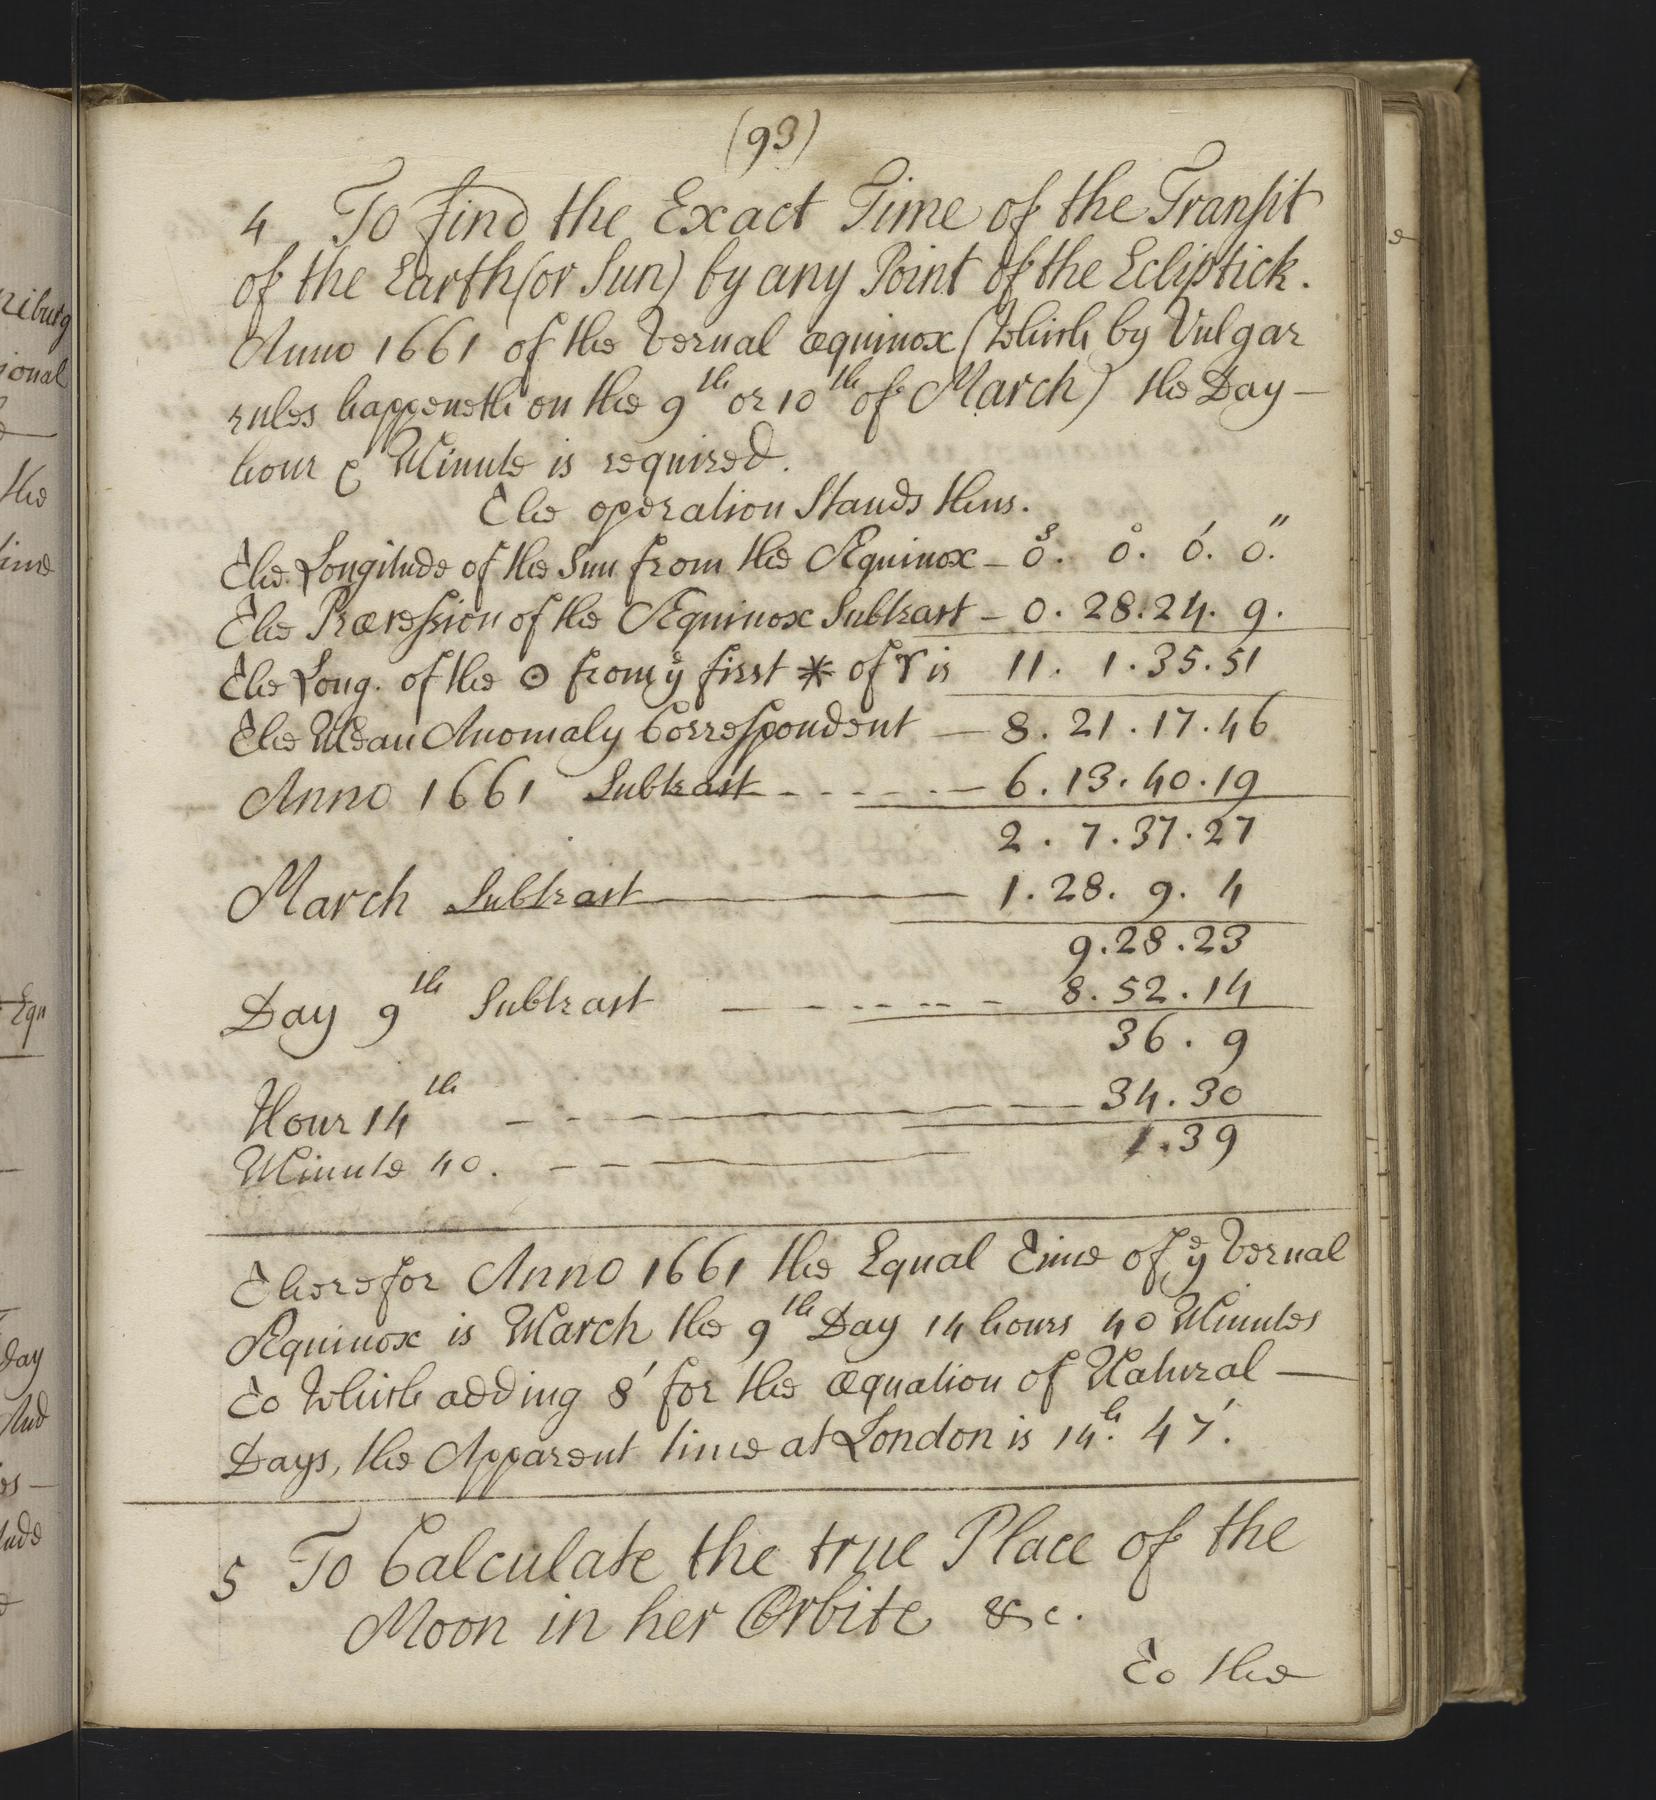 (93)
4 To find the Exact Time of the Transit
of the Earth (or Sun) by any Point of the Ecliptick.
Anno 1661 of the Vernal æquinox (which by Vulgar
rules happeneth on the 9th or 10th of March) the Day —
hour & Minute is required.
The operation Stands thus.
The Longitude of the Sun from the Æquinox – 0s. 0°. 0'. 0."
The Præcession of the Æquinox Subtract – 0. 28. 24. 9.
The Long. of the ☉ from ye first * of ♈ is 11. 1. 35. 51
The Mean Anomaly Correspondent — 8. 21. 17. 46
Anno 1661 Subtract - - - - — 6. 13. 40. 19
2. 7. 37. 27
March Subtract — 1. 28. 9. 4
9. 28. 23
Day 9th Subtract — - - - - - 8. 52. 14
36. 9
Hour 14th - - — 34. 30
Minute 40. - - — 1. 39
Therefor Anno 1661 the Equal Time of ye Vernal
Æquinox is March the 9th Day 14 hours 40 Minutes
To which adding 8' for the æquation of Natural —
Days, the Apparent time at London is 14h. 47'.
5 To Calculate the true Place of the
Moon in her Orbite &c.
To the